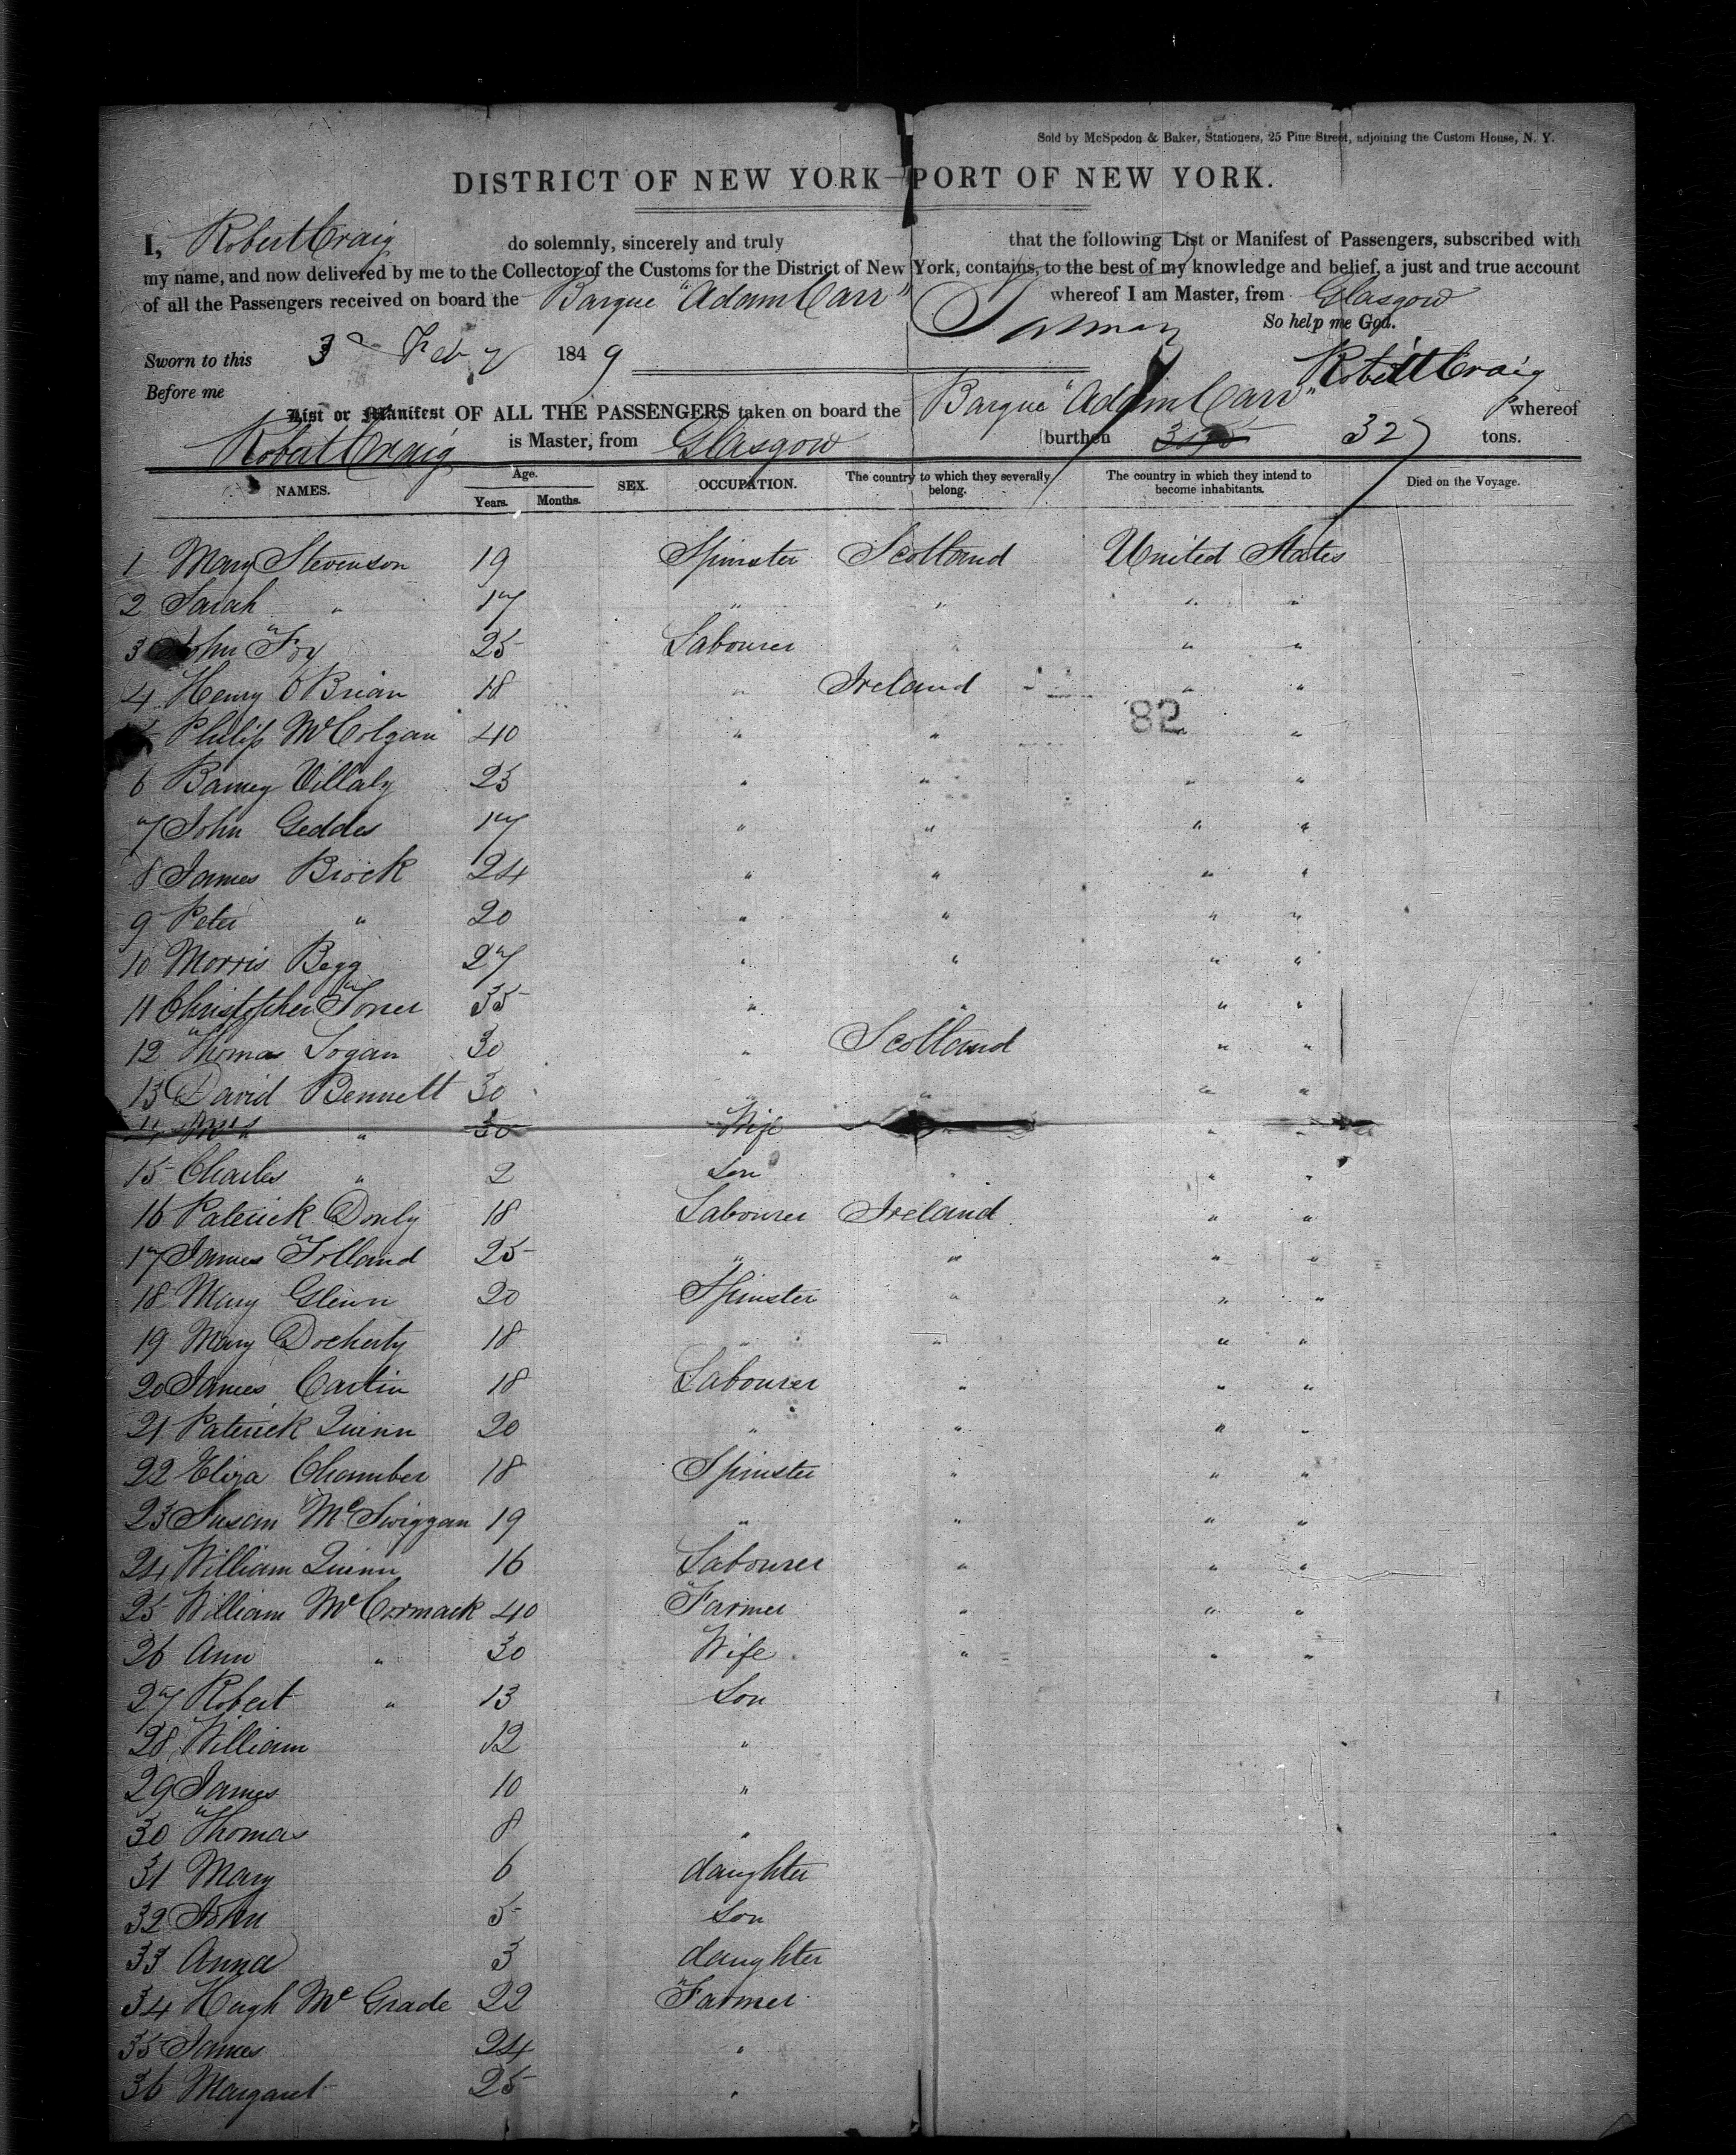 Sold by McSpedon & Baker, Stationers, 25 Pine Street, adjoining the Custom House, N. Y.
DISTRICT OF NEW YORK—PORT OF NEW YORK.
I, Robert Craig do solemnly, sincerely and truly that the following List or Manifest of Passengers, subscribed with
my name, and now delivered by me to the Collector of the Customs for the District of New York, contains, to the best of my knowledge and belief, a just and true account
of all the Passengers received on board the Barque "Adam Carr" whereof I am Master, from Glasgow
So help me God.
Sworn to this 3d Feby 1849
Robert Craig
Before me
List or Manifest OF ALL THE PASSENGERS taken on board the Barque "Adam Carr" whereof
Robert Craig is Master, from Glasgow burthen 327 tons.
NAMES. Age. Years. Months. SEX. OCCUPATION. The country to which they severally belong. The country in which they intend to become inhabitants. Died on the Voyage.
1 Mary Stevenson 19 Spinster Scotland United States
2 Sarah " 17 " " " "
3 John Foy 25 Labourer " " "
4 Henry O'Brian 18 " Ireland " "
82
5 Philip McColgan 40 " " " "
6 Barney Villaly 23 " " " "
7 John Geddes 17 " " " "
8 James Brock 24 " " " "
9 Peter " 20 " " " "
10 Morris Begg 27 " " " "
11 Christopher Toner 35 " " " "
12 Thomas Logan 30 " Scotland " "
13 David Bennett 30 " " " "
14 Mrs " 30 Wife " " "
15 Charles " 2 Son " " "
16 Paterick Donly 18 Labourer Ireland " "
17 James Tolland 25 " " " "
18 Mary Glenn 20 Spinster " " "
19 Mary Docherty 18 " " " "
20 James Cartin 18 Labourer " " "
21 Paterick Quinn 20 " " " "
22 Eliza Chamber 18 Spinster " " "
23 Susan McSwiggan 19 " " " "
24 William Quinn 16 Labourer " " "
25 William McCormack 40 Farmer " " "
26 Ann " 30 Wife " " "
27 Robert " 13 Son
28 William 12 "
29 James 10 "
30 Thomas 8 "
31 Mary 6 daughter
32 John 5 Son
33 Anna 3 daughter
34 Hugh McGrade 22 Farmer
35 James 24 "
36 Margaret 25 "